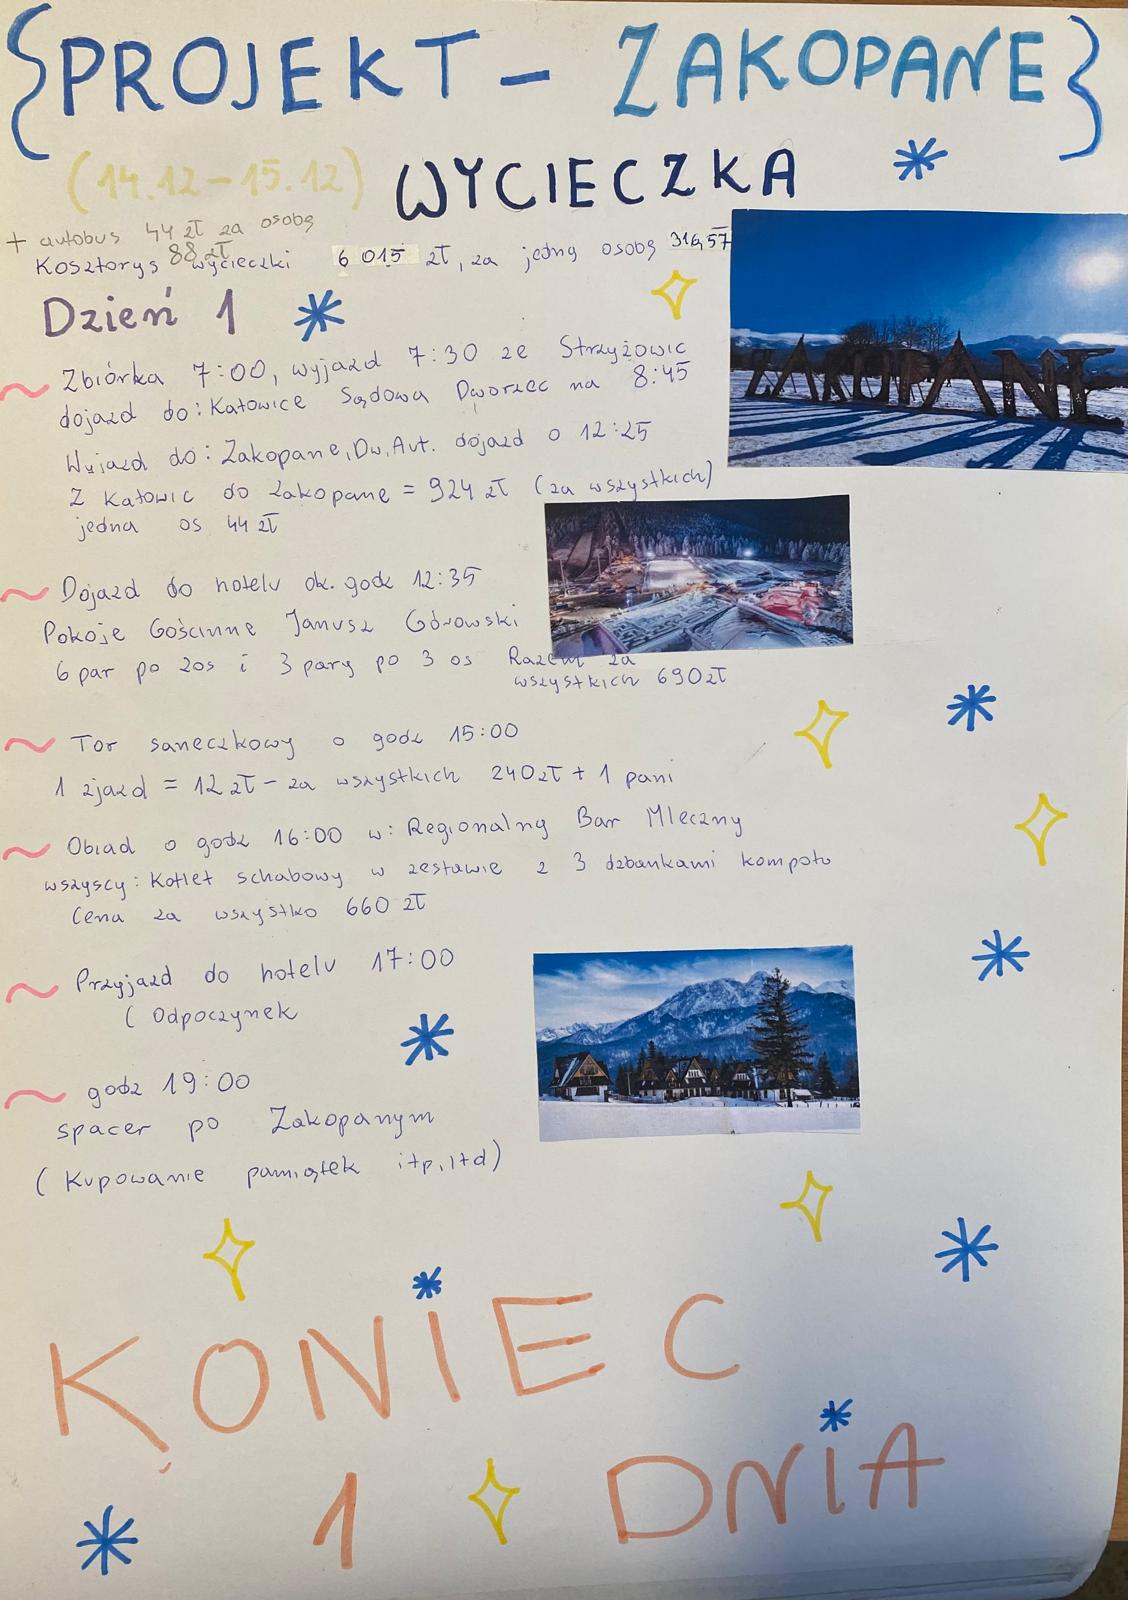 {PROJEKT - ZAKOPANE}
(14.12-15.12) WYCIECZKA
+ autobus 44 zł za osobę
88 zł
Kosztorys wycieczki 6 015 zł, za jedną osobę 316,57
Dzień 1
~ Zbiórka 7:00, wyjazd 7:30 ze Strzyżowic
dojazd do: Katowice Sądowa Dworzec na 8:45
Wyjazd do: Zakopane, Dw, Aut. dojazd o 12:25
Z Katowic do Zakopane = 924 zł (za wszystkich)
jedna os 44 zł
~ Dojazd do hotelu ok. godz 12:35
Pokoje Gościnne Janusz Górowski
6 par po 2os i 3 pary po 3 os Razem za
wszystkich 690zł
~ Tor saneczkowy o godz 15:00
1 zjazd = 12 zł - za wszystkich 240zł + 1 pani
~ Obiad o godz 16:00 w: Regionalny Bar Mleczny
wszyscy: Kotlet schabowy w zestawie z 3 dzbankami kompotu
Cena za wszystko 660 zł
~ Przyjazd do hotelu 17:00
( Odpoczynek
~ godz 19:00
spacer po Zakopanym
( Kupowanie pamiątek itp, itd)
ZAKOPANE
KONIEC
1 DNIA